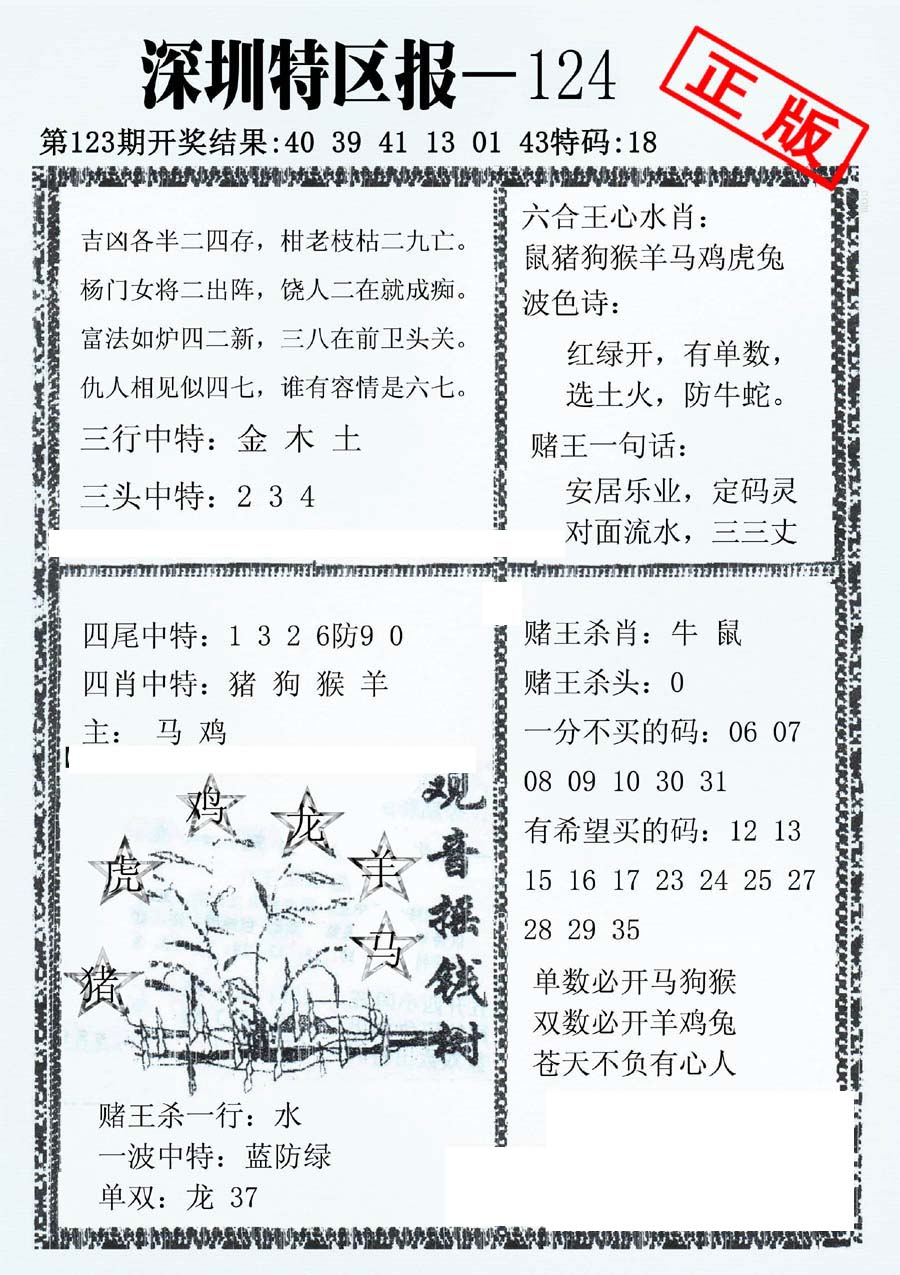 深圳特区报—124
正版
第123期开奖结果:40 39 41 13 01 43特码:18
吉凶各半二四存，柑老枝枯二九亡。
杨门女将二出阵，饶人二在就成痴。
富法如炉四二新，三八在前卫头关。
仇人相见似四七，谁有容情是六七。
三行中特：金 木 土
三头中特：2 3 4
六合王心水肖：
鼠猪狗猴羊马鸡虎兔
波色诗：
红绿开，有单数，
选土火，防牛蛇。
赌王一句话：
安居乐业，定码灵
对面流水，三三丈
四尾中特：1 3 2 6防9 0
四肖中特：猪 狗 猴 羊
主： 马 鸡
鸡
龙
虎
羊
马
猪
观音摇钱树
赌王杀一行：水
一波中特：蓝防绿
单双：龙 37
赌王杀肖：牛 鼠
赌王杀头：0
一分不买的码：06 07
08 09 10 30 31
有希望买的码：12 13
15 16 17 23 24 25 27
28 29 35
单数必开马狗猴
双数必开羊鸡兔
苍天不负有心人